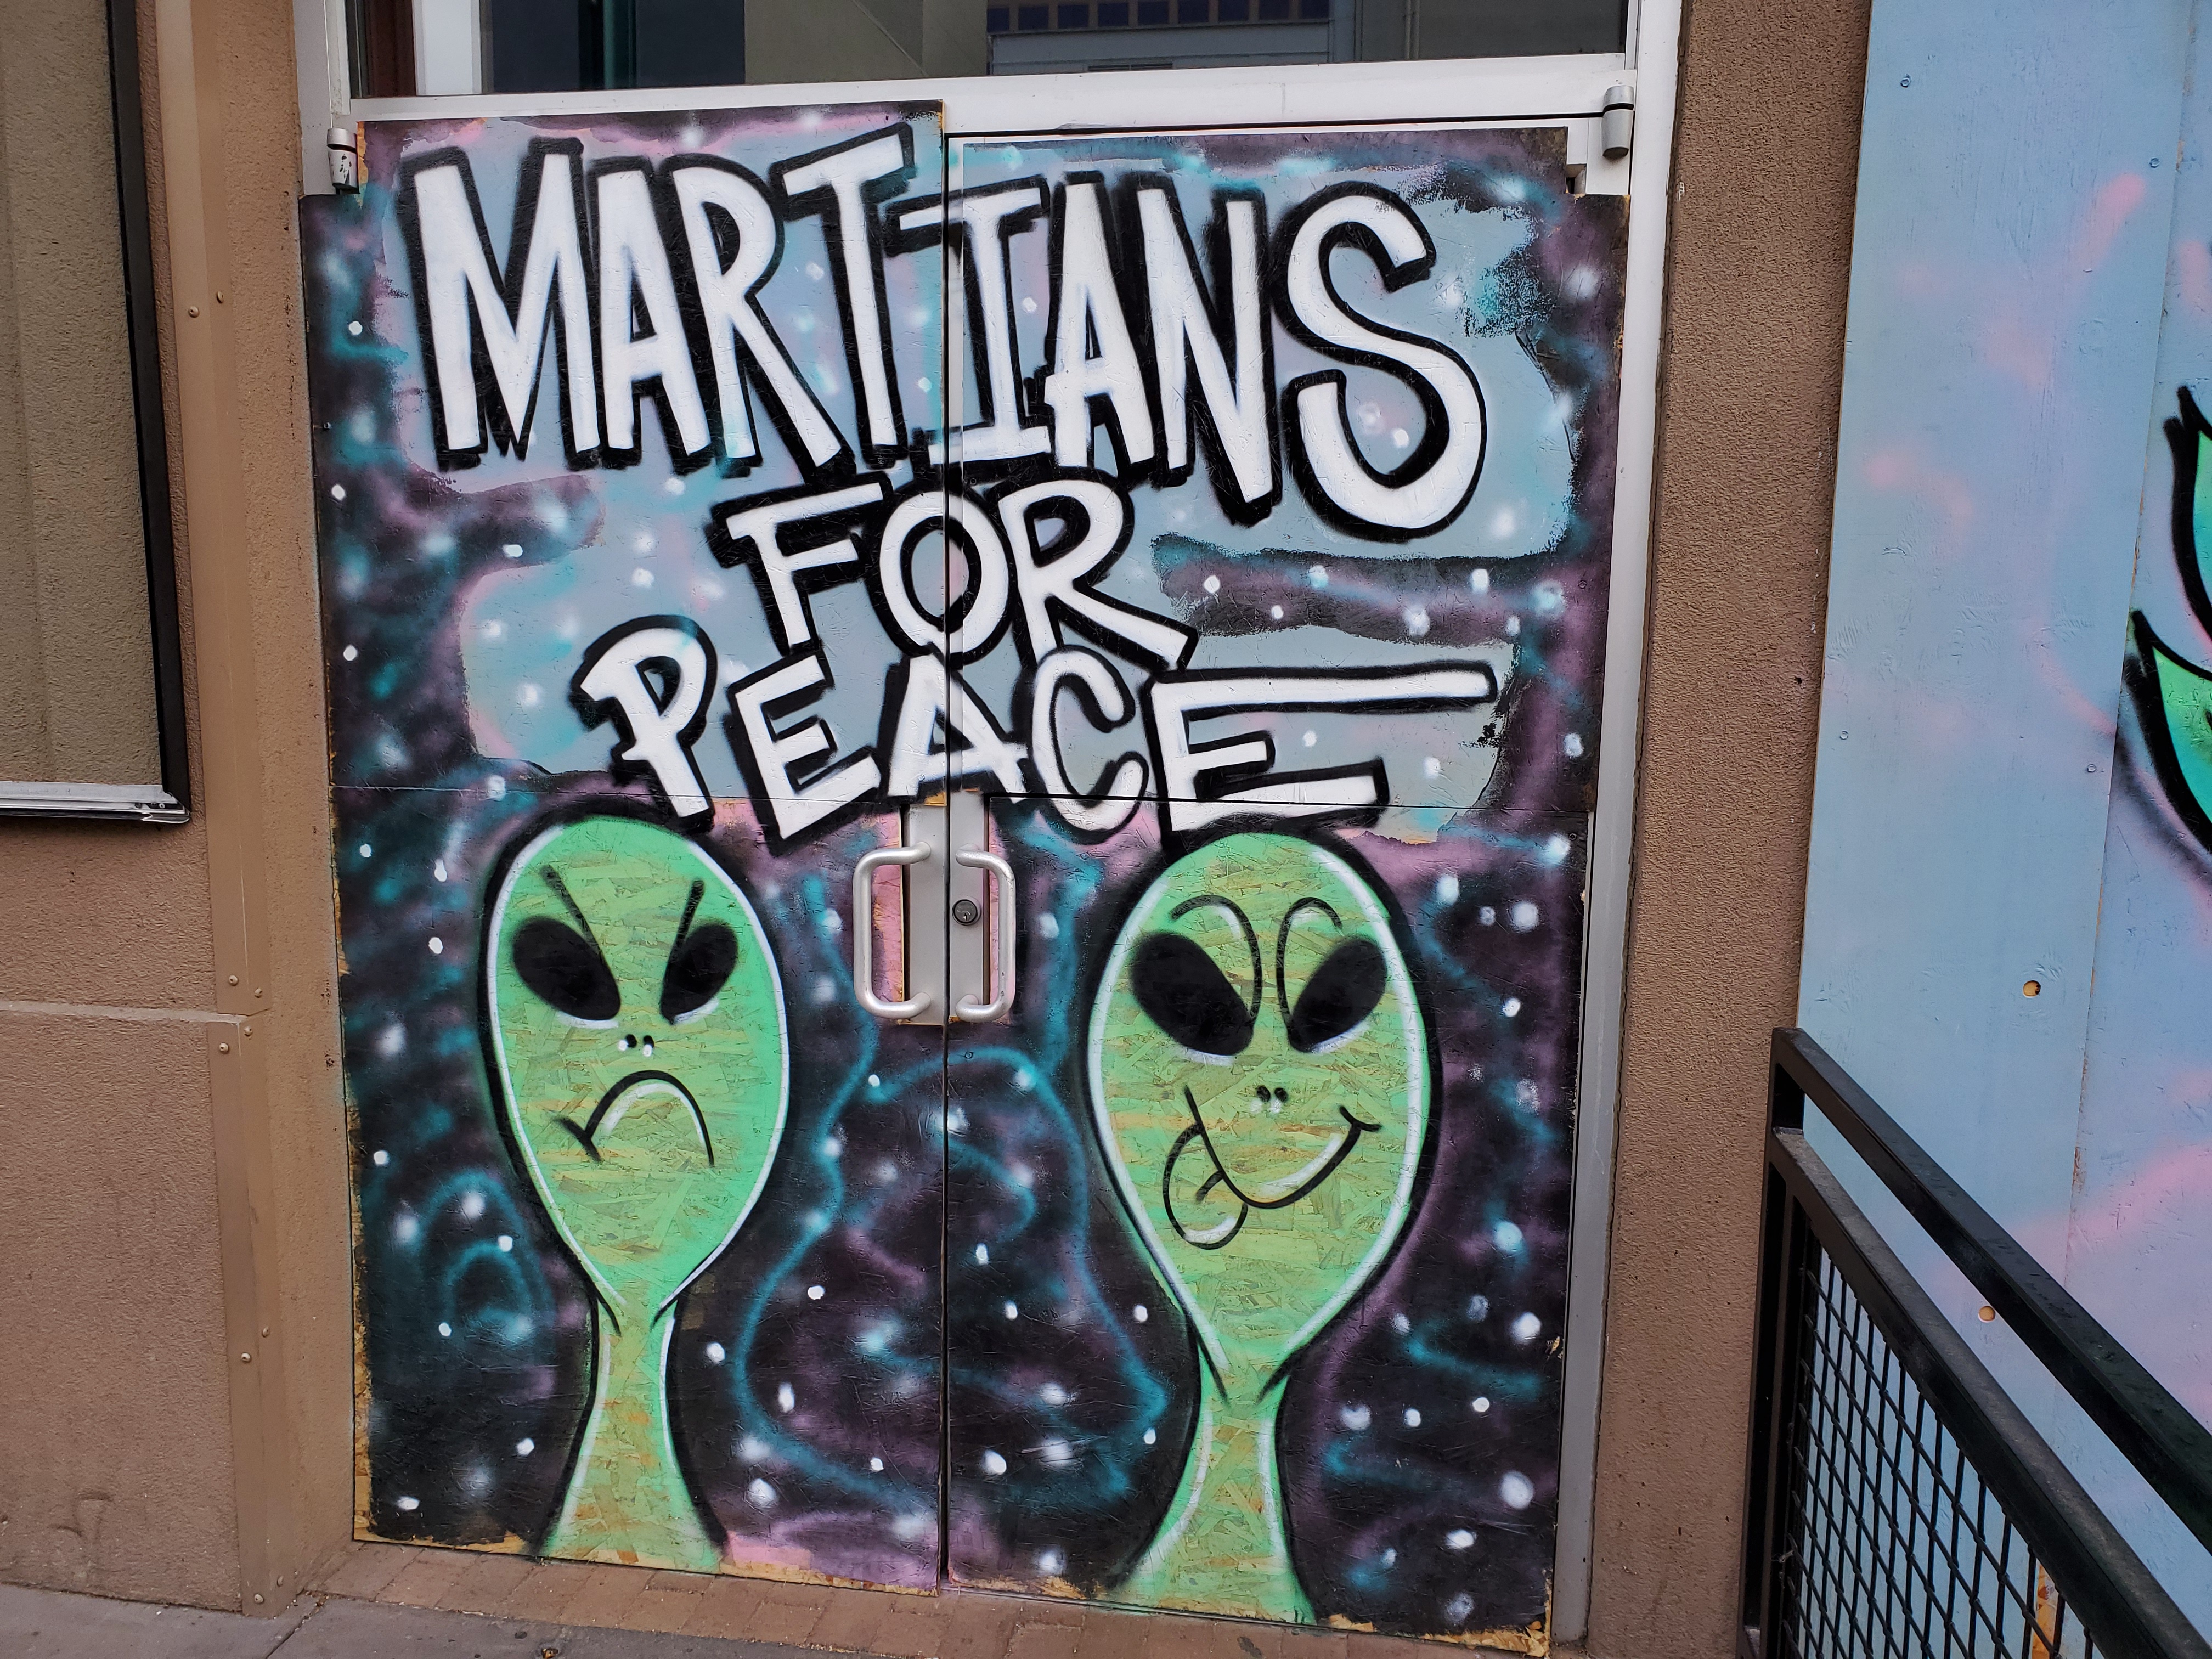 MARTIANS
FOR
PEACE